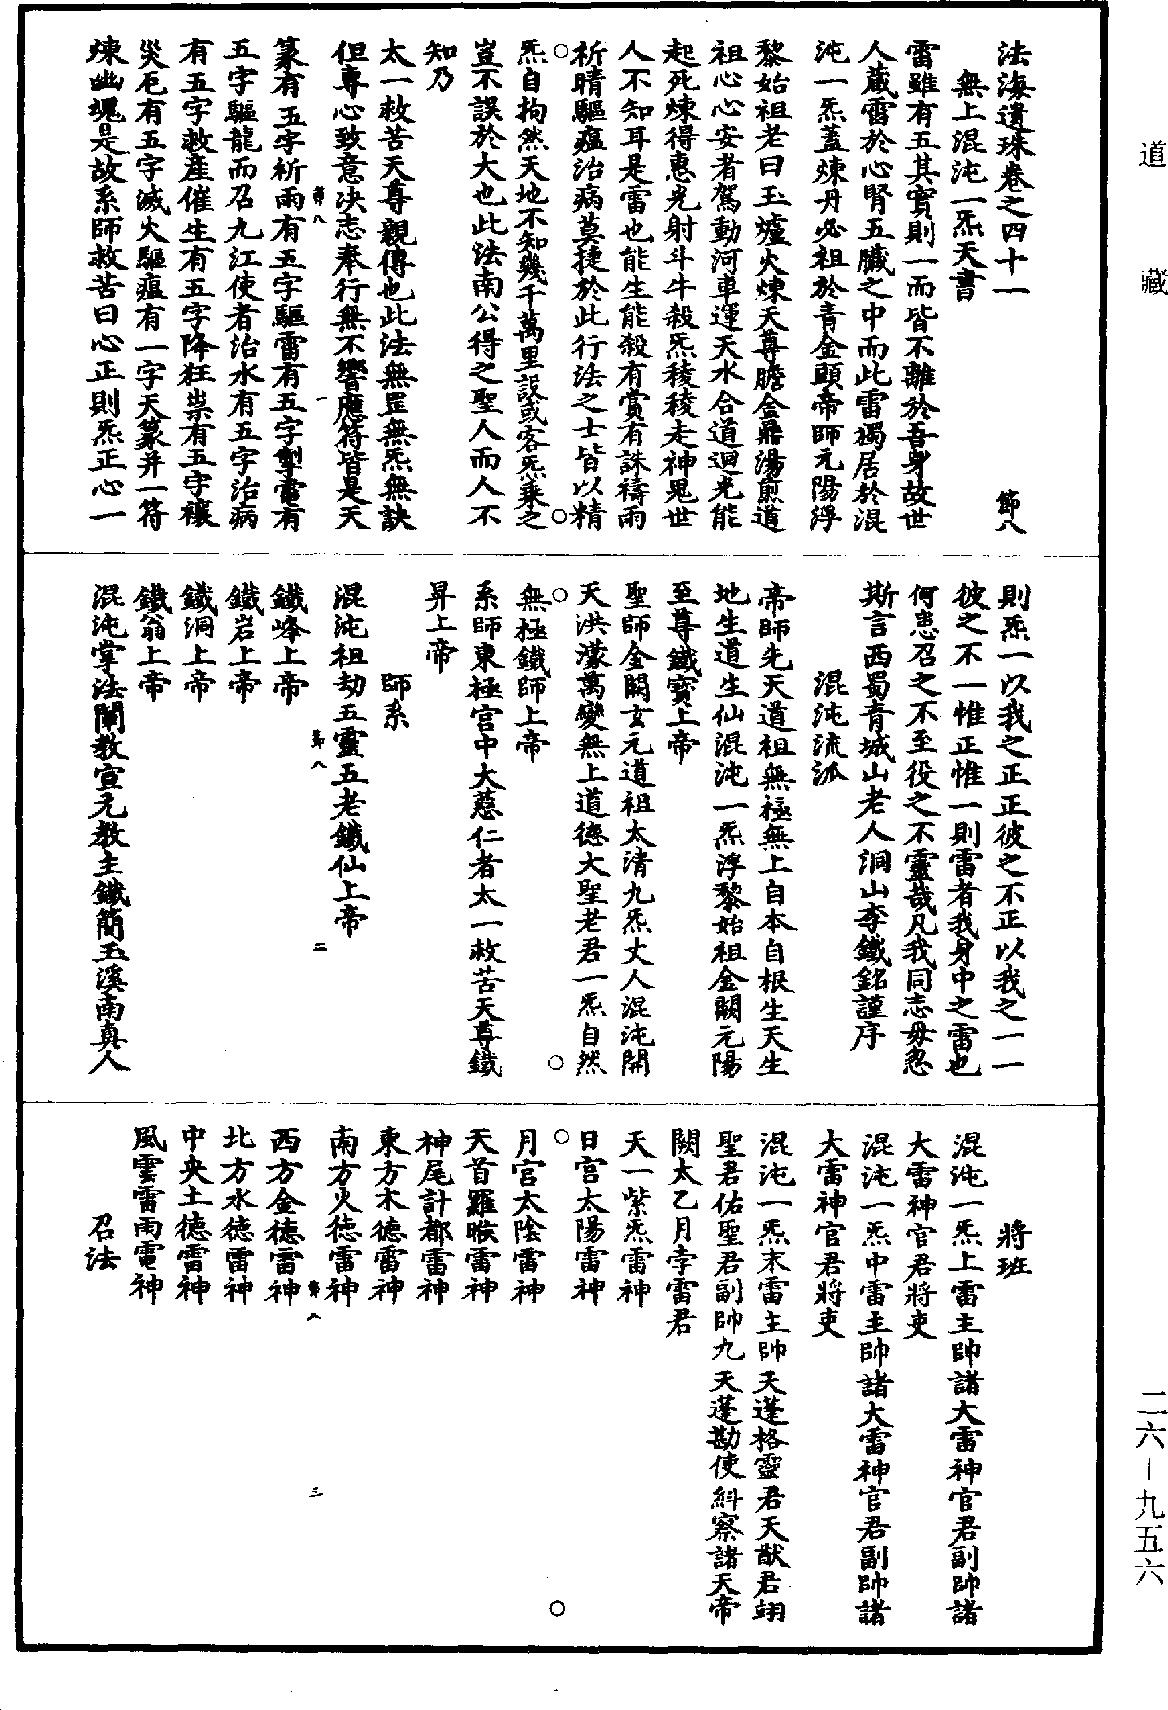 道藏
二六—九五六
法海遺珠卷之四十一　節八
無上混沌一炁天書
雷雖有五其實則一而皆不離於吾身故世
人藏雷於心腎五臟之中而此雷獨居於混
沌一炁蓋煉丹必祖於青金頤帝師元陽浮
黎始祖老曰玉爐火煉天尊膽金鼎湯煎道
祖心心安者駕動河車運天水合道迴光能
起死煉得惠光射斗牛殺炁稜稜走神鬼世
人不知耳是雷也能生能殺有賞有誅禱雨
祈晴驅瘟治病莫捷於此行法之士皆以精
炁自拘然天地不知幾千萬里設或客炁乘之
豈不誤於大也此法南公得之聖人而人不
知乃
太一救苦天尊親傳也此法無罡無炁無訣
但專心致意决志奉行無不響應符皆是天
節八　一
篆有五字祈雨有五字驅雷有五字掣電有
五字驅龍而召九江使者治水有五字治病
有五字救產催生有五字降狂祟有五字禳
災厄有五字滅火驅瘟有一字天篆并一符
煉幽魂是故系師救苦曰心正則炁正心一
則炁一以我之正正彼之不正以我之一一
彼之不一惟正惟一則雷者我身中之雷也
何患召之不至役之不靈哉凡我同志毋忽
斯言西蜀青城山老人洞山李鐵銘謹序
混沌流派
帝師先天道祖無極無上自本自根生天生
地生道生仙混沌一炁浮黎始祖金闕元陽
至尊鐵寶上帝
聖師金闕玄元道祖太清九炁丈人混沌開
天洪濛萬變無上道德大聖老君一炁自然
無極鐵師上帝
系師東極宮中大慈仁者太一救苦天尊鐵
昇上帝
師系
混沌祖劫五靈五老鐵仙上帝
節八　二
鐵峰上帝
鐵岩上帝
鐵洞上帝
鐵翁上帝
混沌掌法闡教宣元教主鐵簡玉溪南真人
將班
混沌一炁上雷主帥諸大雷神官君副帥諸
大雷神官君將吏
混沌一炁中雷主帥諸大雷神官君副帥諸
大雷神官君將吏
混沌一炁末雷主帥天蓬格靈君天猷君翊
聖君佑聖君副帥九天蓬勘使糾察諸天帝
闕太乙月孛雷君
天一紫炁雷神
日宮太陽雷神
月宮太陰雷神
天首羅睺雷神
神尾計都雷神
東方木德雷神
南方火德雷神
節八　三
西方金德雷神
北方水德雷神
中央土德雷神
風雲雷雨電神
召法